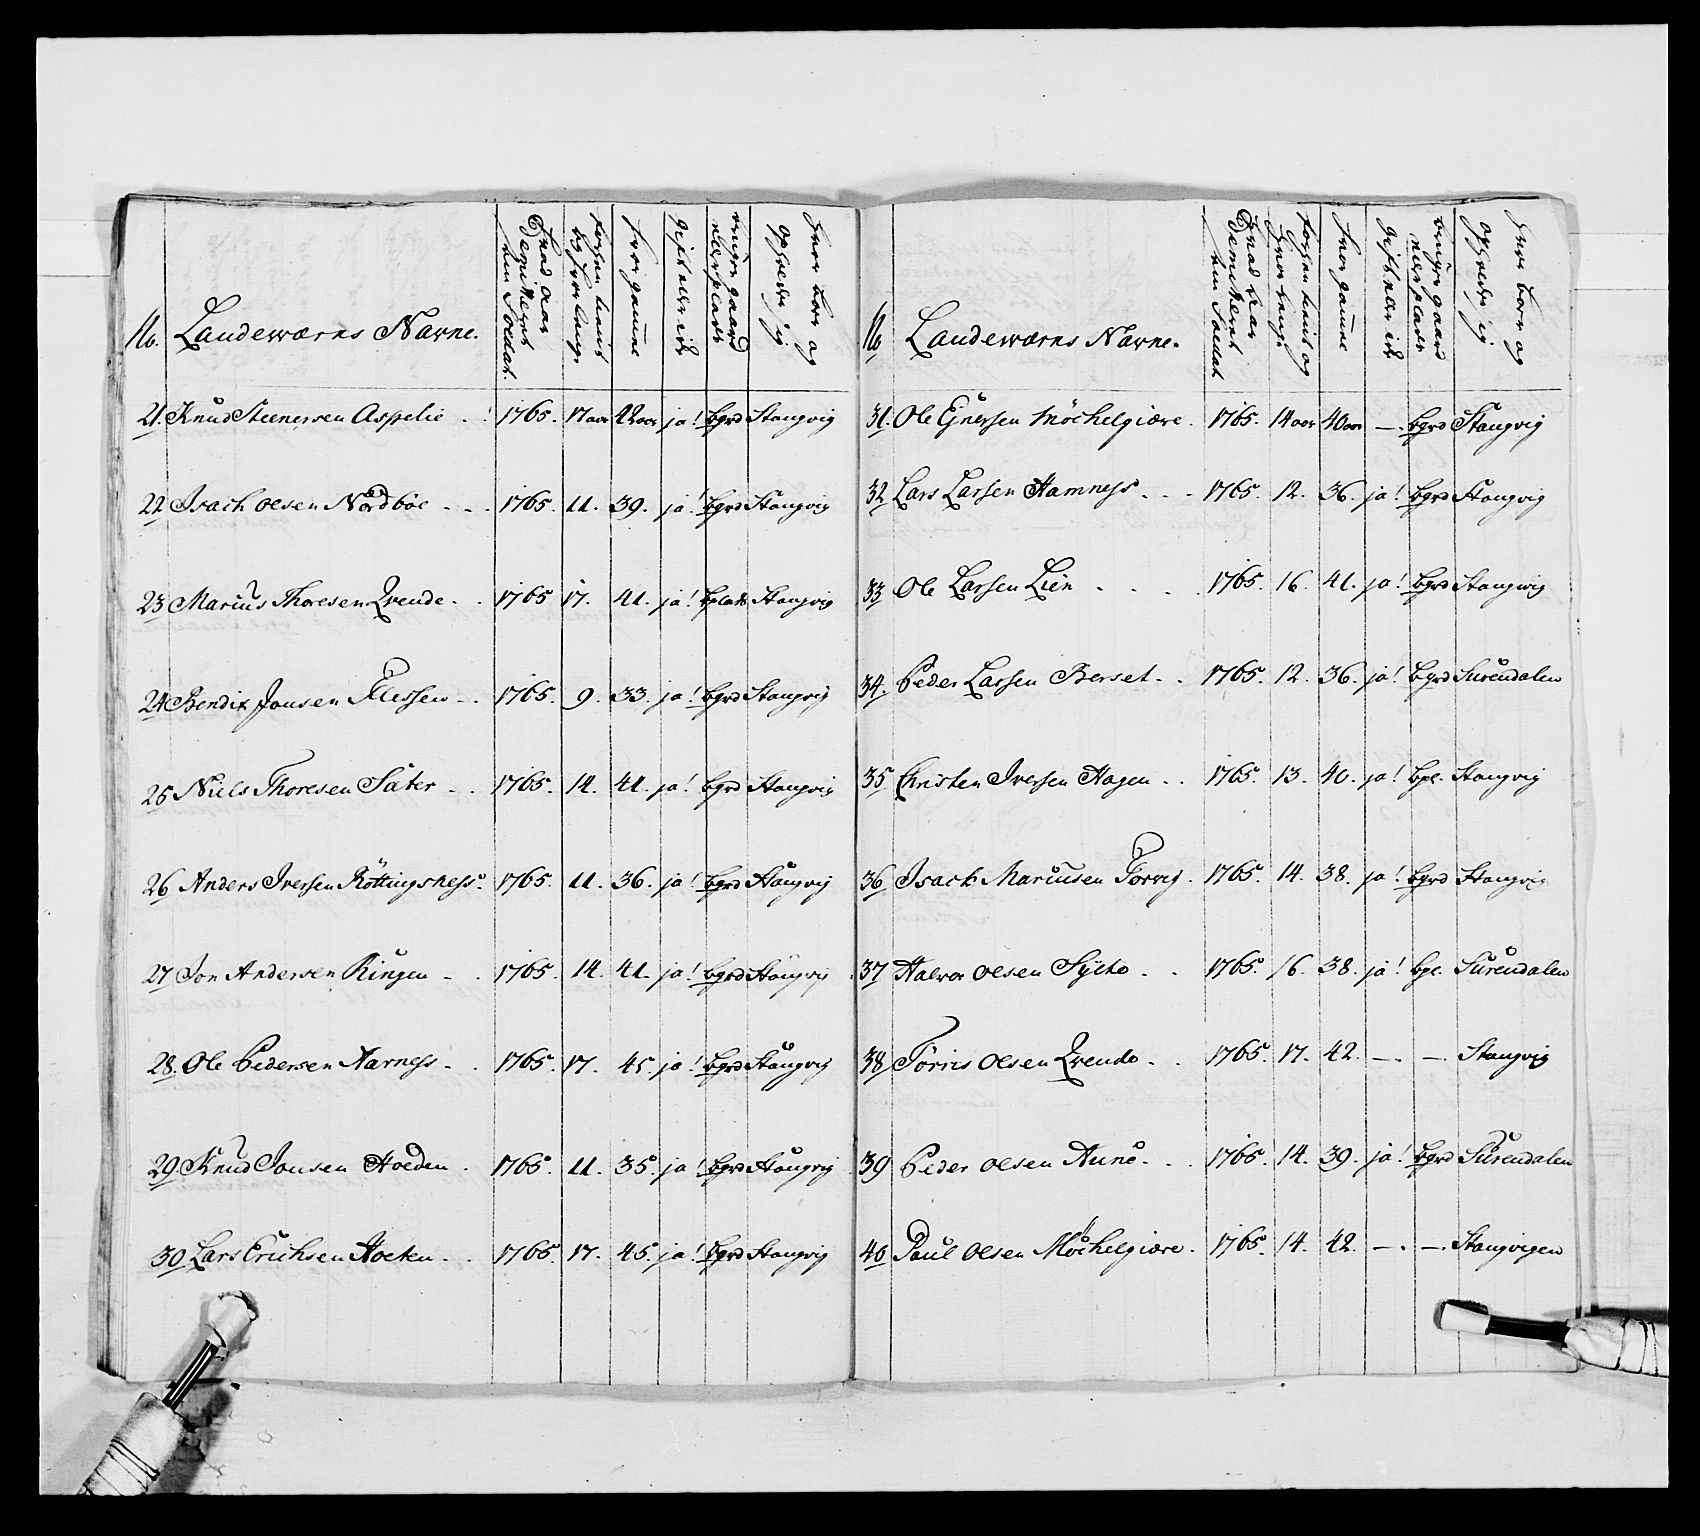 No. Landeværns Navne. Hvad aar Demitteret som Soldat. hvor gamel gift eller ei hvor boer og
21. Knud Steenersen Aspelie . . 1765. 17 aar 42 aar ja! bgrd Stangvig
22 Isach Olsen Nordbøe . . . 1765. 11. 39. ja! bgrd Stangvig
23 Marius Thoresen Qvende . . 1765 17. 41. ja! bplads Stangvig
24 Bendix Jonsen Flessen . . 1765. 9. 33. ja! bgrd Stangvig
25 Niels Thoresen Sæter . . 1765. 14. 41. ja! bgrd Stangvig
26 Anders Iversen Røttingsness. 1765. 11. 36. ja! bgrd Stangvig
27 Jon Andersen Ringen . . 1765. 14. 41. ja! bgrd Stangvig
28. Ole Pedersen Narness . . 1765. 17. 45. ja! bgrd Stangvig
29 Knud Jonsen Holden . 1765. 11. 35. ja! bgrd Stangvig
30 Lars Erichsen Holten . . 1765. 17. 45. ja! bgrd Stangvig
No Landeværns Navne. Hvad Aar Demitteret som Soldat hvor gamel gift eller ei hvor boer og
31. Ole Ejnersen Møchelgiære . 1765. 14 aar 40 aar —. bgrd Stangvig
32 Lars Larsen Hamness . . . 1765. 12. 36. ja! bgrd Stangvig
33 Ole Larsen Lien . . . . 1765. 16. 41. ja! bgrd Stangvig
34. Peder Larsen Berset . . 1765. 12. 36. ja! bgrd Surendalen
35 Christen Iversen Hagen . . 1765. 13. 40. ja! bpl. Stangvig
36 Isach Mariusen Torvig . 1765. 14. 38. ja! bgrd Stangvig
37 Halvor Olsen Sylte . . 1765. 16. 38. ja! bpl. Surendalen
38 Tørris Olsen Qvende . . 1765. 17. 42. —. —. Stangvig
39 Peder Olsen Aune . . . 1765. 14. 39. ja! bgrd Surendalen
40 Paul Olsen Møchelgiære . 1765. 14. 42. —. —. Stangvigen